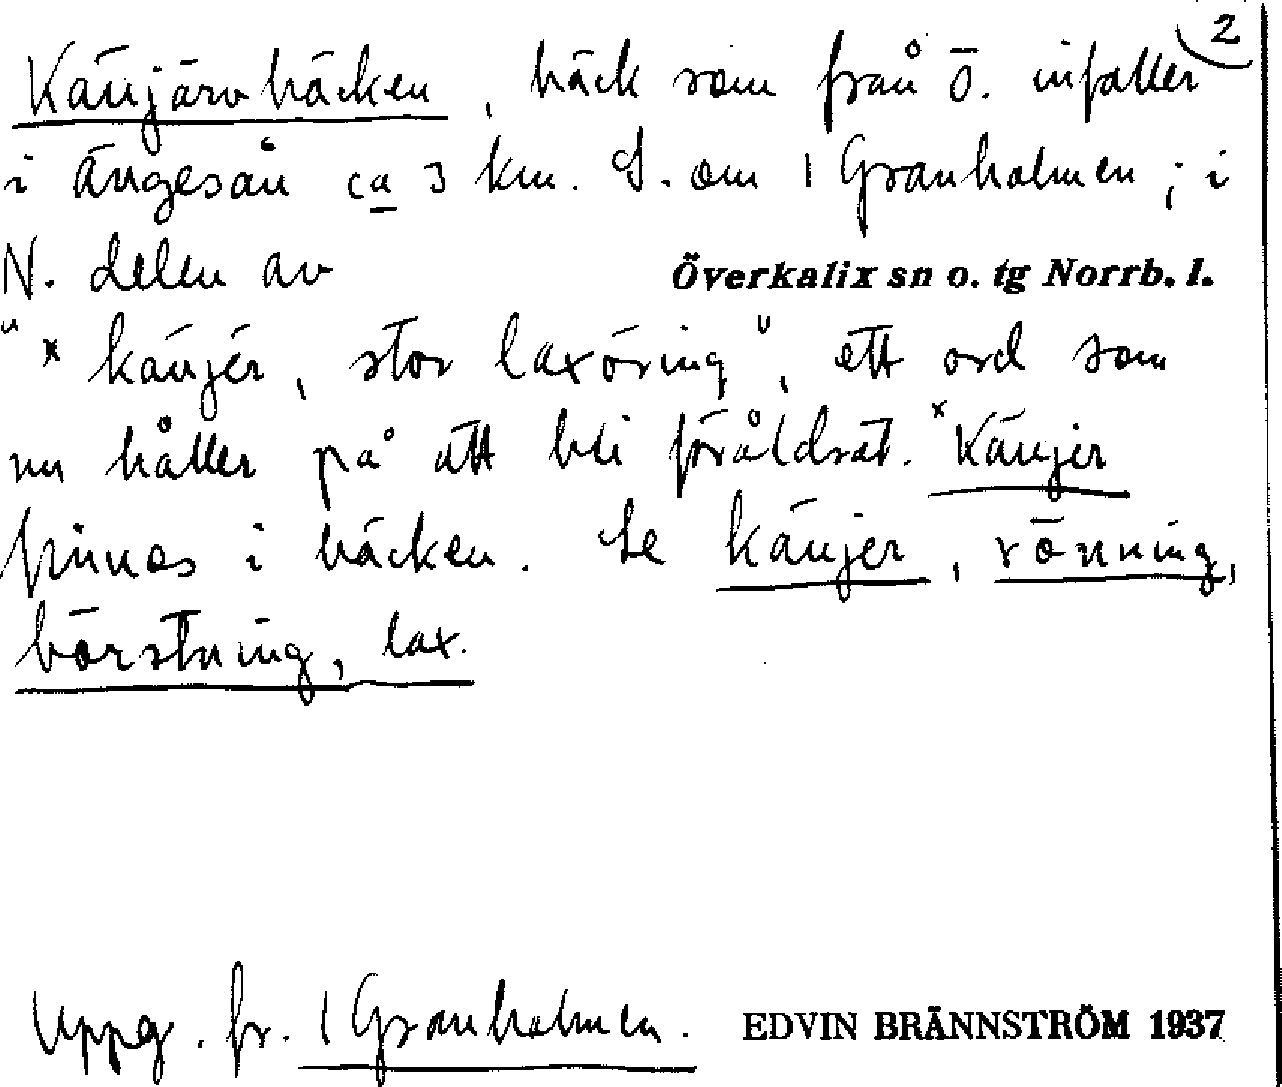 2
Känjärvbäcken, bäck som från Ö. infaller
i Ängesån ca 3 km. S. om 1 Granholmen; i
N. delen av Överkalix sn o. tg Norrb. l.
"× känjer, stor laxöring", ett ord som
nu håller på att bli föråldrat. ×Känjer
finnes i bäcken. Se känjer, rönning,
börstning, lax.
Uppg. fr. 1 Granholmen. EDVIN BRÄNNSTRÖM 1937